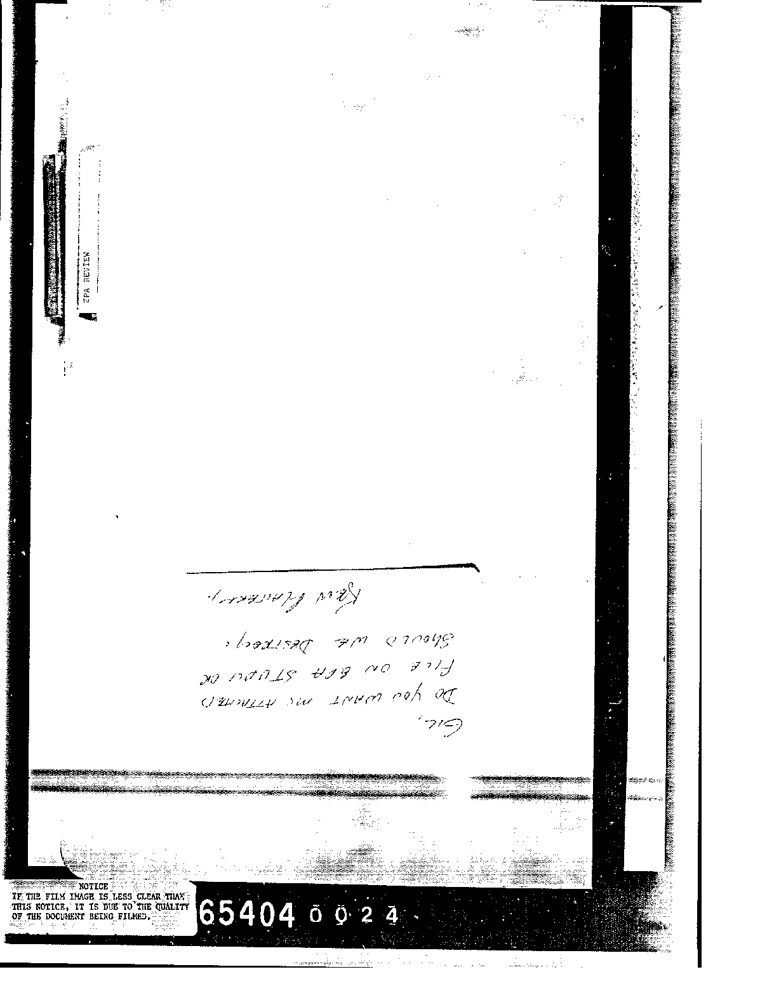 EPA REVIEW
GIL,
DO YOU WANT MC ATTACHED
FILE ON EPA STUDY OR
SHOULD WE DESTROY.
NOTICE
IF THE FILM IMAGE IS LESS CLEAR THAN
THIS NOTICE, IT IS DUE TO THE QUALITY
OF THE DOCUMENT BEING FILMED.
65404 0024